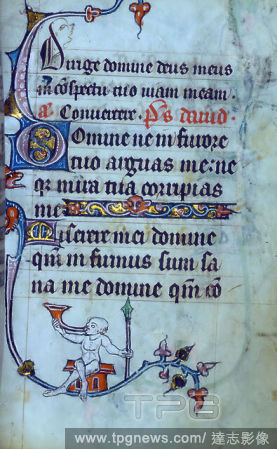 Dirige domine deus meus
in cōspectu tuo uiam meam.
a. Conuertere. p̄s dauid.
Domine ne in furore
tuo arguas me: ne
qȝ in ira tua corripias
me
Miserere mei domine
qm̄ infirmus sum sa
na me domine qm̄ cō
TPG
www.tpgnews.com/ 達志影像